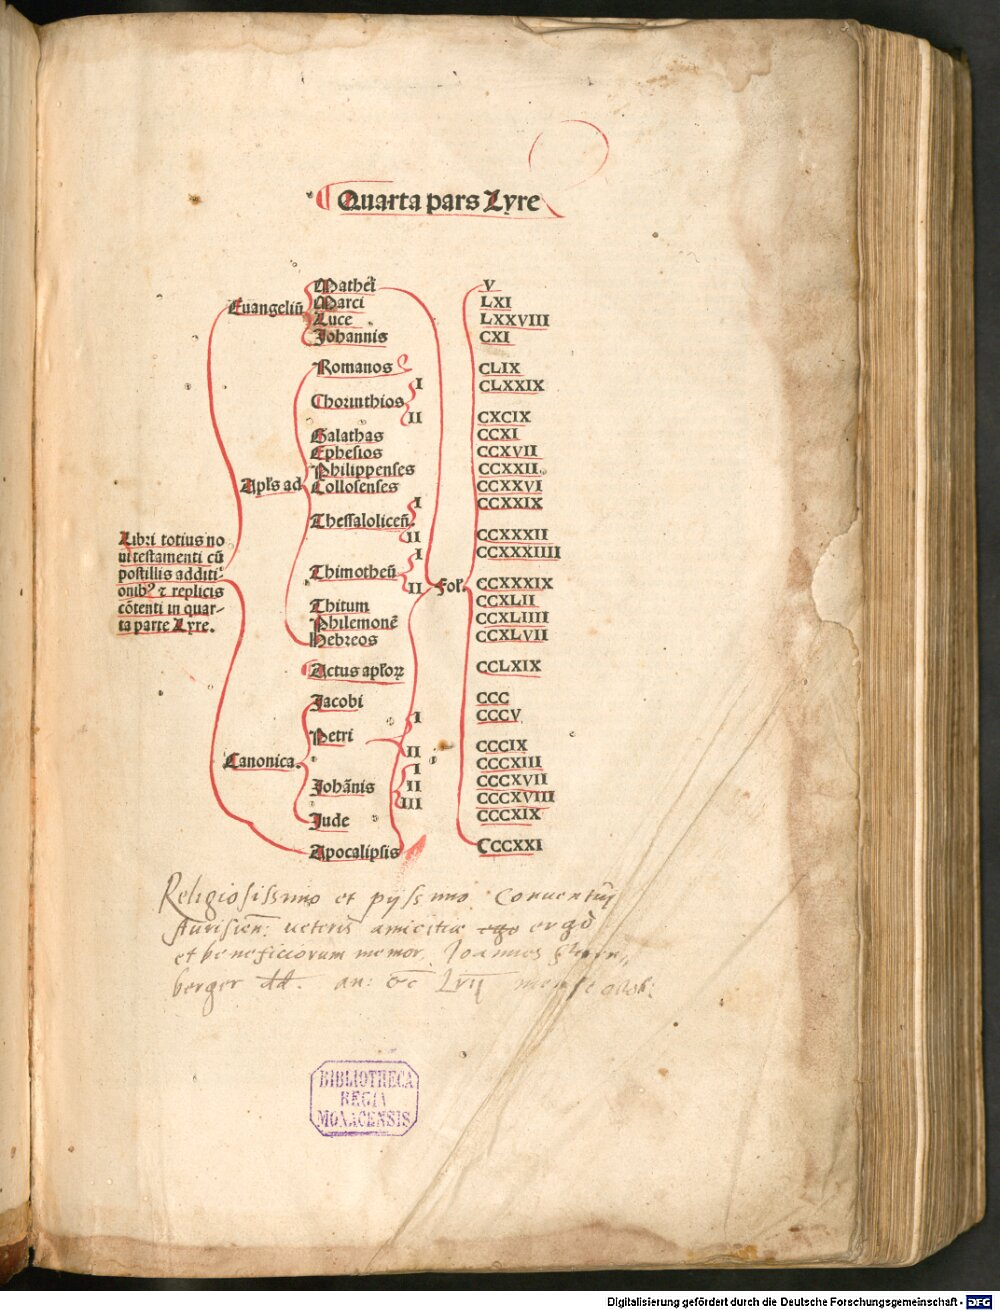 Quarta pars Lyre
Euangeliū
Mathei V
Marci LXI
Luce LXXVIII
Johannis CXI
Apl's ad
Romanos CLIX
Chorinthios I CLXXIX
II CXCIX
Galathas CCXI
Ephesios CCXVII
Philippenses CCXXII
Collosenses CCXXVI
Thessalolicen̄. I CCXXIX
II CCXXXII
Thimotheū I CCXXXIIII
II CCXXXIX
Thitum CCXLII
Philemonē CCXLIIII
Hebreos CCXLVII
Actus apl'oꝝ CCLXIX
Fol'.
Libri totius no
ui testamenti cū
postillis additi-
onibꝰ ⁊ replicis
cōtenti in quar-
ta parte Lyre.
Canonica.
Jacobi CCC
Petri I CCCV
II CCCIX
Johānis I CCCXIII
II CCCXVII
III CCCXVIII
Jude CCCXIX
Apocalipsis CCCXXI
Religiosissimo et pijssimo Conventui
veteris amicitiæ ergo
et beneficiorum memor. Joannes
berger dd. an: mense
BIBLIOTHECA
REGIA
MONACENSIS
Digitalisierung gefördert durch die Deutsche Forschungsgemeinschaft - DFG